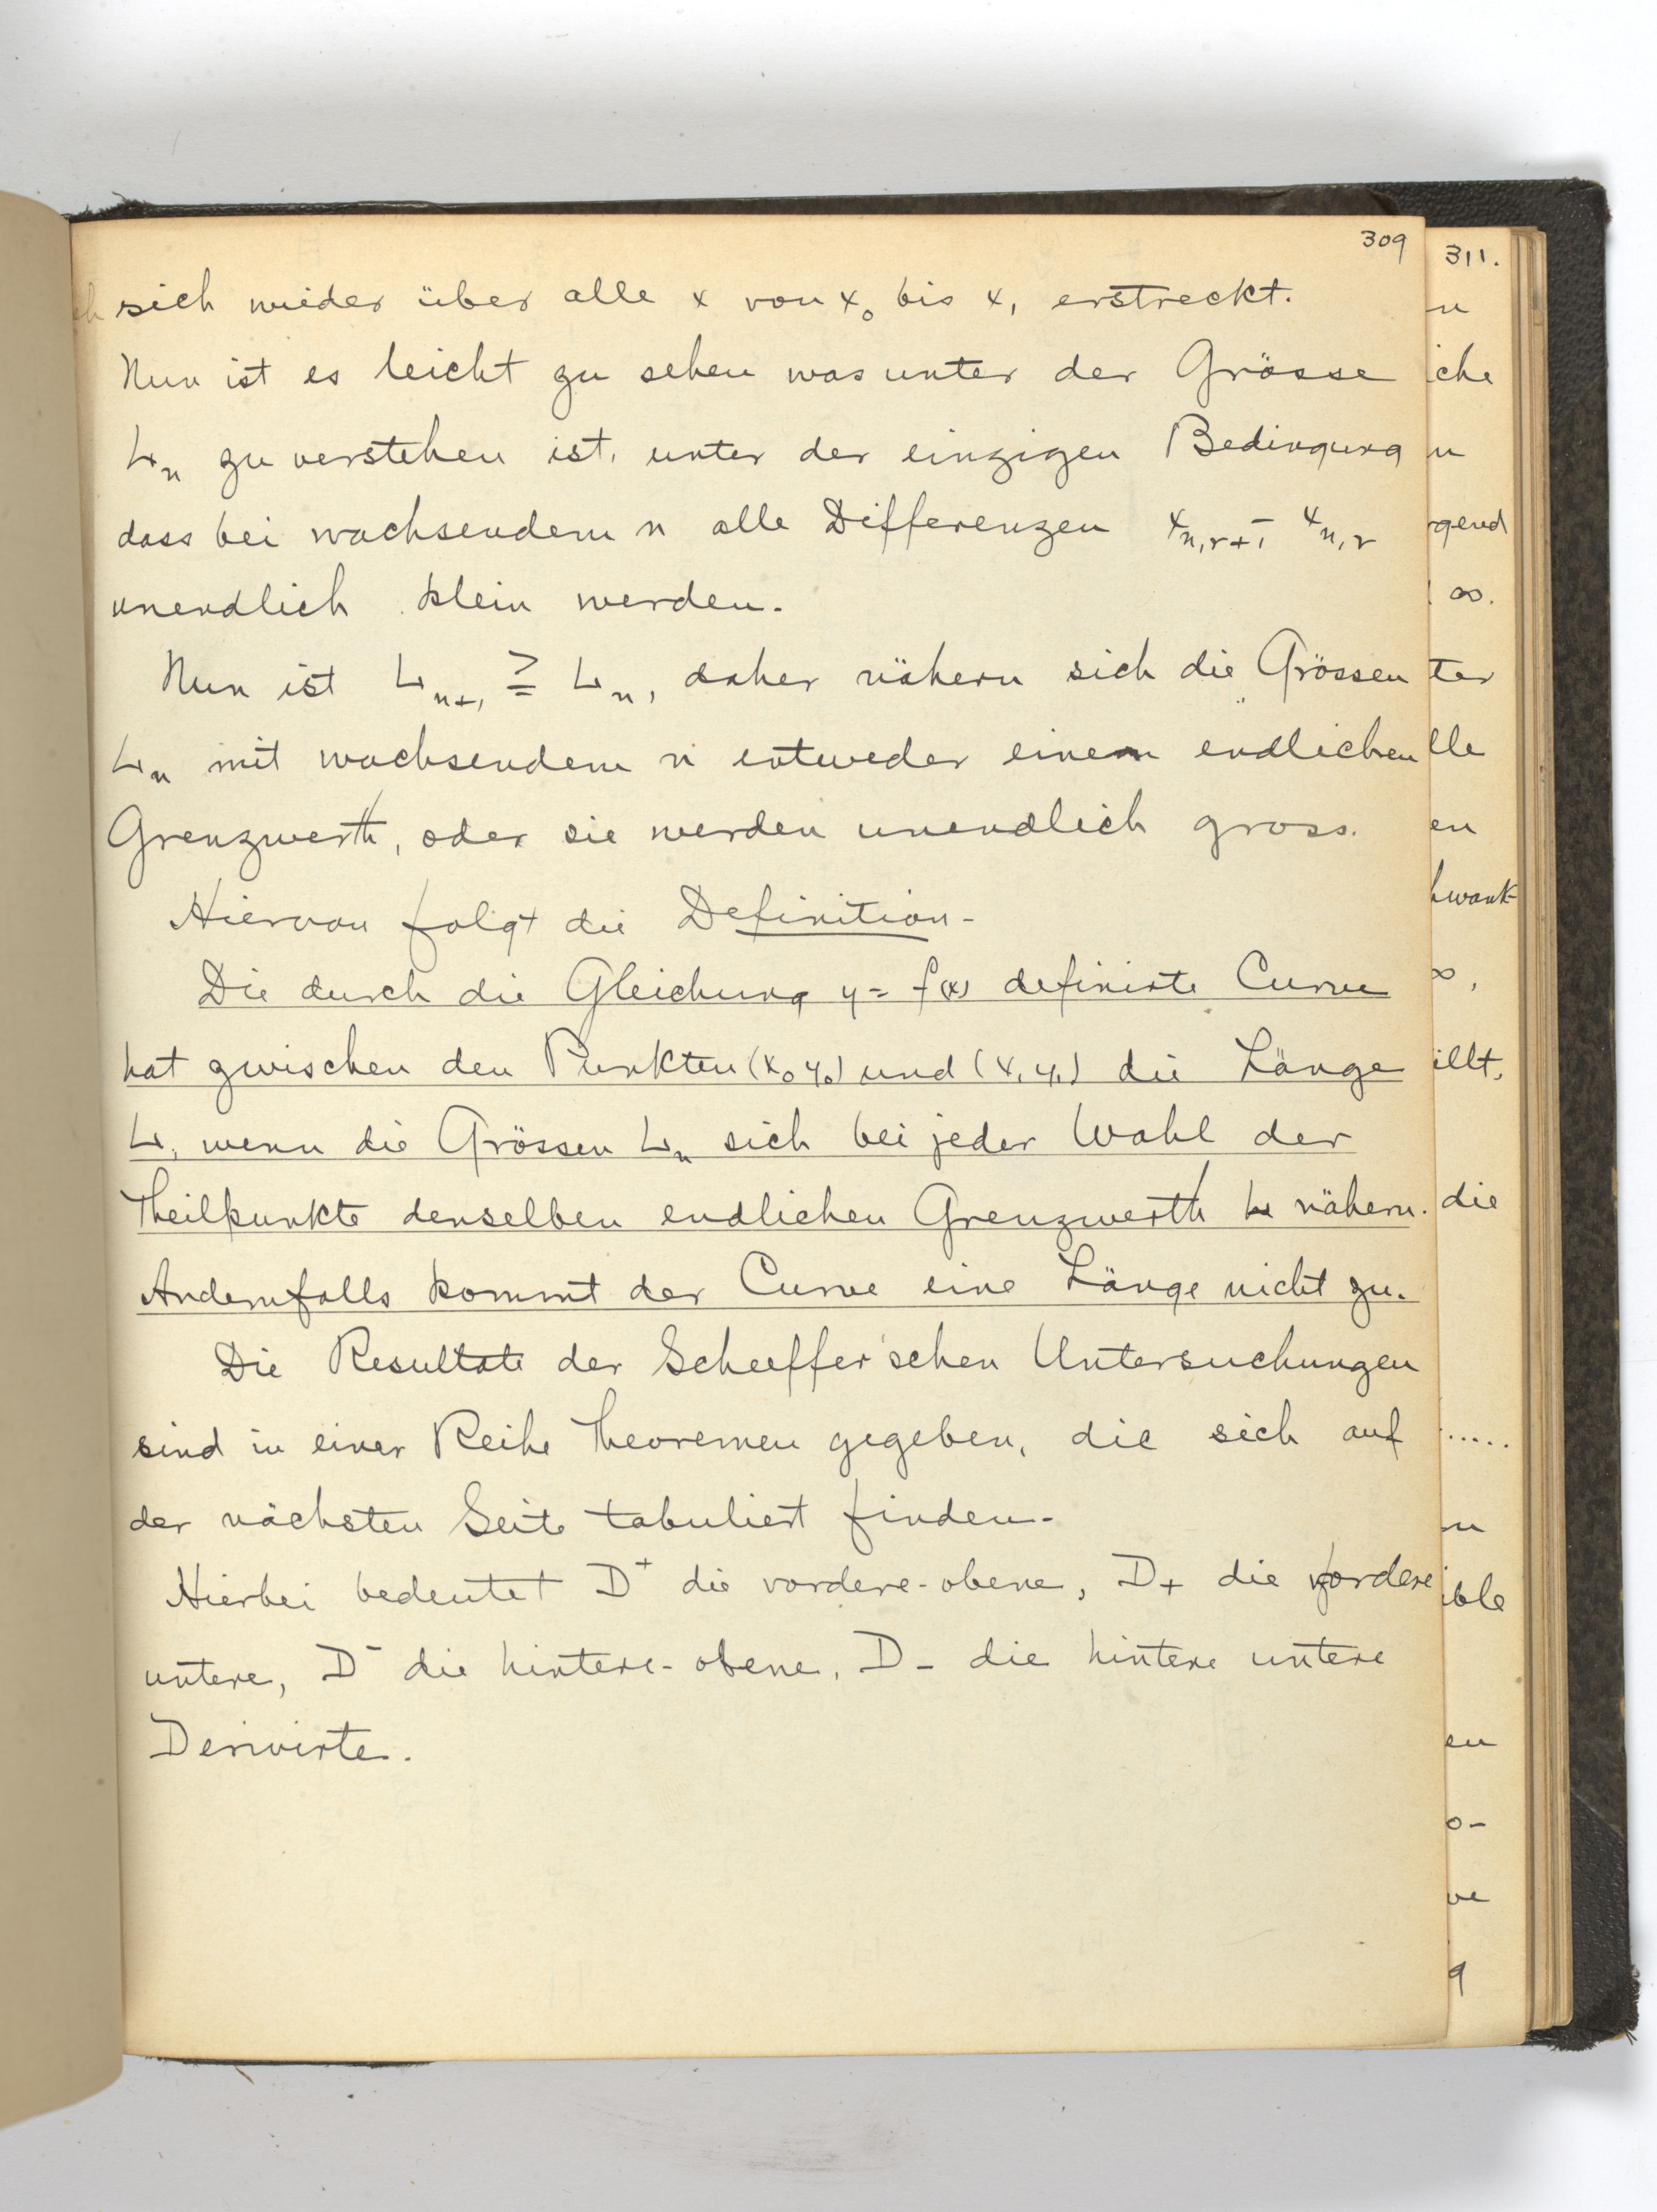 309
sich wieder über alle x von x₀ bis x₁ erstreckt.
Nun ist es leicht zu sehen was unter der Grösse
Lₙ zu verstehen ist, unter der einzigen Bedingung
dass bei wachsendem n alle Differenzen xₙ,ᵣ₊₁ - xₙ,ᵣ
unendlich klein werden.
Nun ist Lₙ₊₁ ≧ Lₙ, daher nähern sich die Grössen
Lₙ mit wachsendem n entweder einem endlichen
Grenzwerth, oder sie werden unendlich gross.
Hiervon folgt die Definition-
Die durch die Gleichung y = f(x) definirte Curve
hat zwischen den Punkten (x₀ y₀) und (x₁ y₁) die Länge
L, wenn die Grössen Lₙ sich bei jeder Wahl der
Theilpunkte denselben endlichen Grenzwerth L nähern.
Andernfalls kommt der Curve eine Länge nicht zu.
Die Resultate der Scheeffer'schen Untersuchungen
sind in einer Reihe Theoremen gegeben, die sich auf
der nächsten Seite tabuliert finden-
Hierbei bedeutet D⁺ die vordere-obene, D₊ die vordere
untere, D⁻ die hintere-obene, D₋ die hintere untere
Derivirte.
311.
iche
gend
∞.
ter
lle
en
hwank-
∞,
illt,
die
.....
ible
en
o-
ve
g